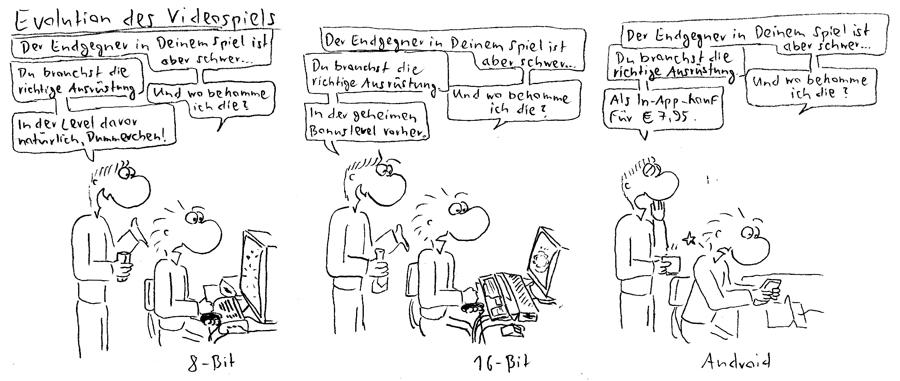 Evolution des Videospiels
Der Endgegner in Deinem Spiel ist
aber schwer...
Du brauchst die
richtige Ausrüstung
Und wo bekomme
ich die?
In der Level davor
natürlich, Dummerchen!
8-Bit
Der Endgegner in Deinem Spiel ist
aber schwer...
Du brauchst die
richtige Ausrüstung
Und wo bekomme
ich die?
In der geheimen
Bonuslevel vorher.
16-Bit
Der Endgegner in Deinem Spiel ist
aber schwer...
Du brauchst die
richtige Ausrüstung
Und wo bekomme
ich die?
Als In-App-Kauf
Für € 7,95.
Android